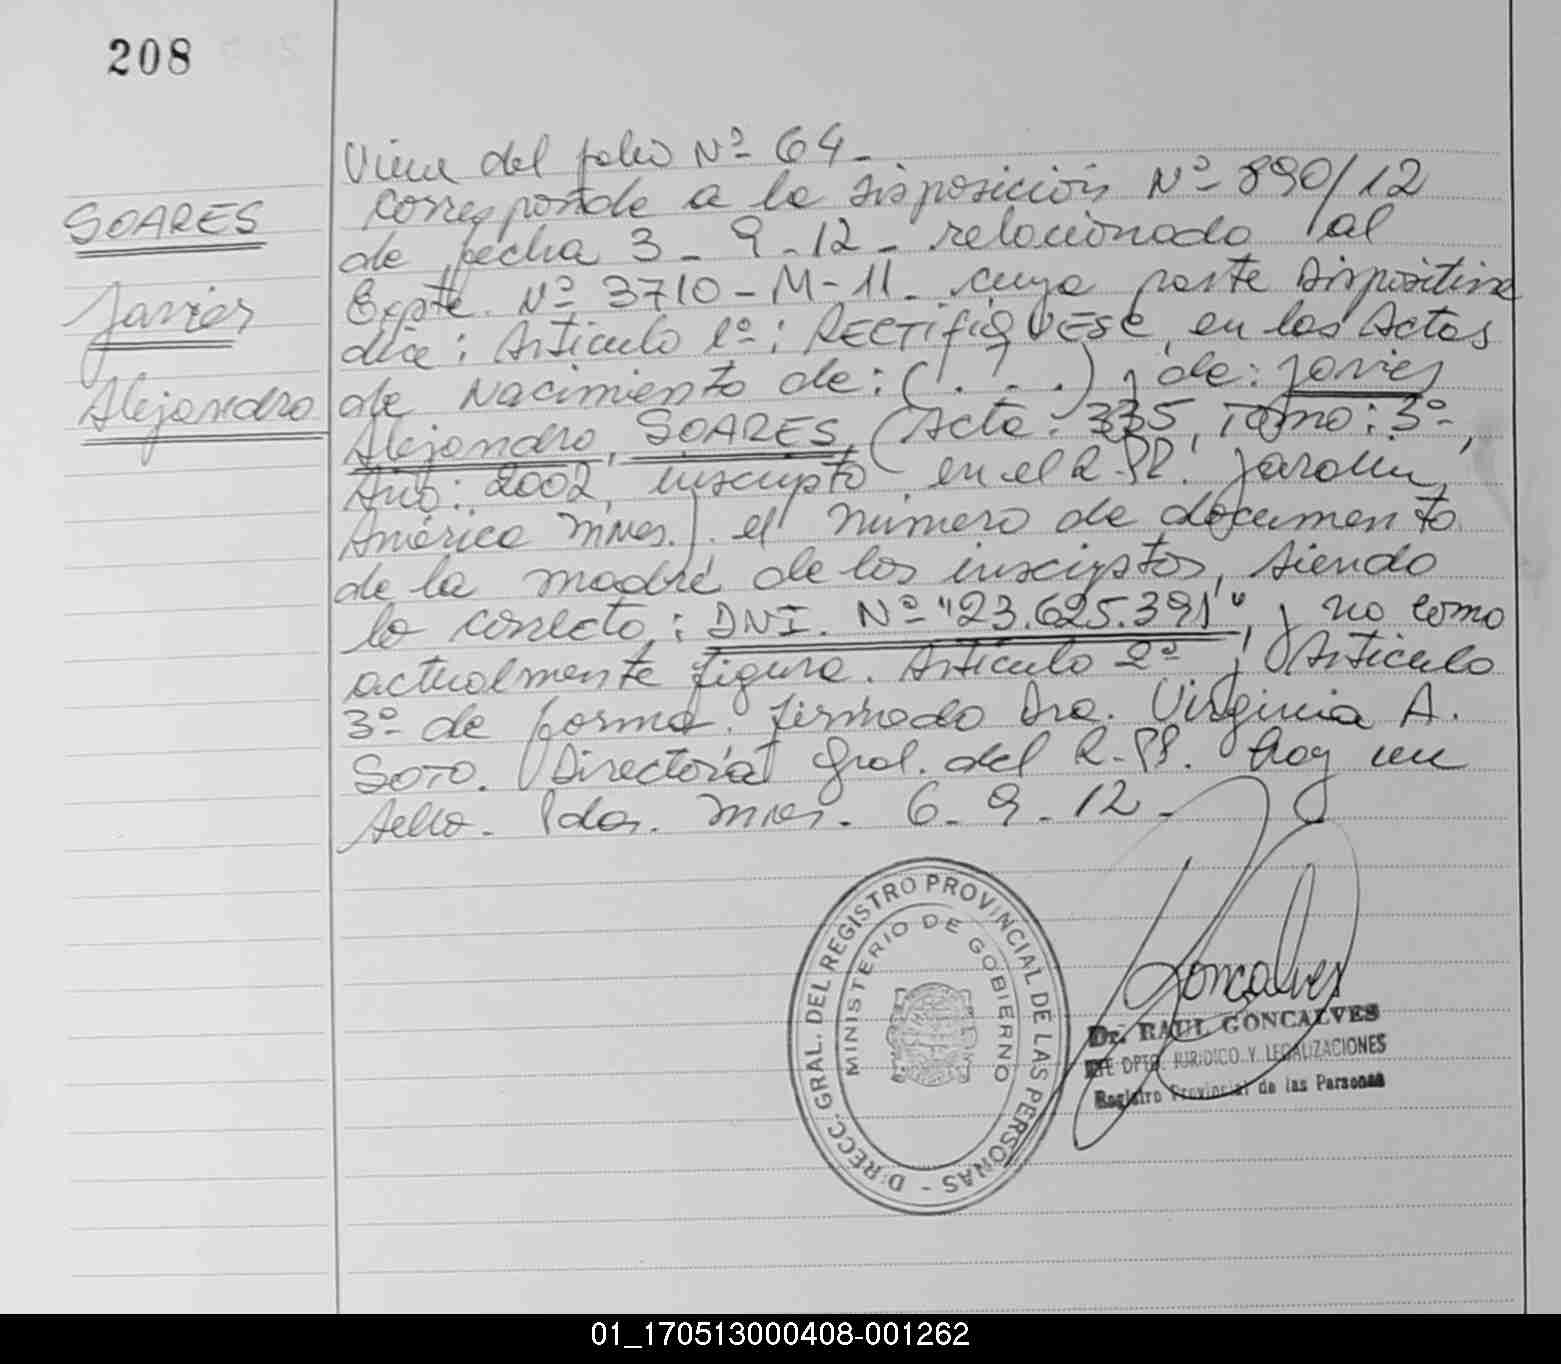 208
SOARES
Javier
Alejandro
Viene del folio Nº 64-
Corresponde a la Disposición Nº 890/12
de fecha 3-9-12- relacionado al
Expte. Nº 3710-M-11- cuya parte Dispositiva
dice: Artículo 1º: RECTIFIQUESE, en las Actas
de Nacimiento de: (. . .) y de: Javier
Alejandro, SOARES, (Acta: 335, Tomo: 3º-,
Año: 2002, inscripto en el R.PP. Jardín
América Mnes.). el número de documento
de la madre de los inscriptos, siendo
lo correcto: DNI. Nº "23.625.391", y no como
actualmente figura. Artículo 2º y Artículo
3º de forma. firmado Dra. Virginia A.
SOTO. Directora Gral. del R.PP. Hay un
sello. Pdas. Mnes. 6-9-12-
DIRECC. GRAL. DEL REGISTRO PROVINCIAL DE LAS PERSONAS -
MINISTERIO DE GOBIERNO
Goncalves
Dr. RAUL GONCALVES
JEFE DPTO. JURIDICO Y LEGALIZACIONES
Registro Provincial de las Personas
01_170513000408-001262